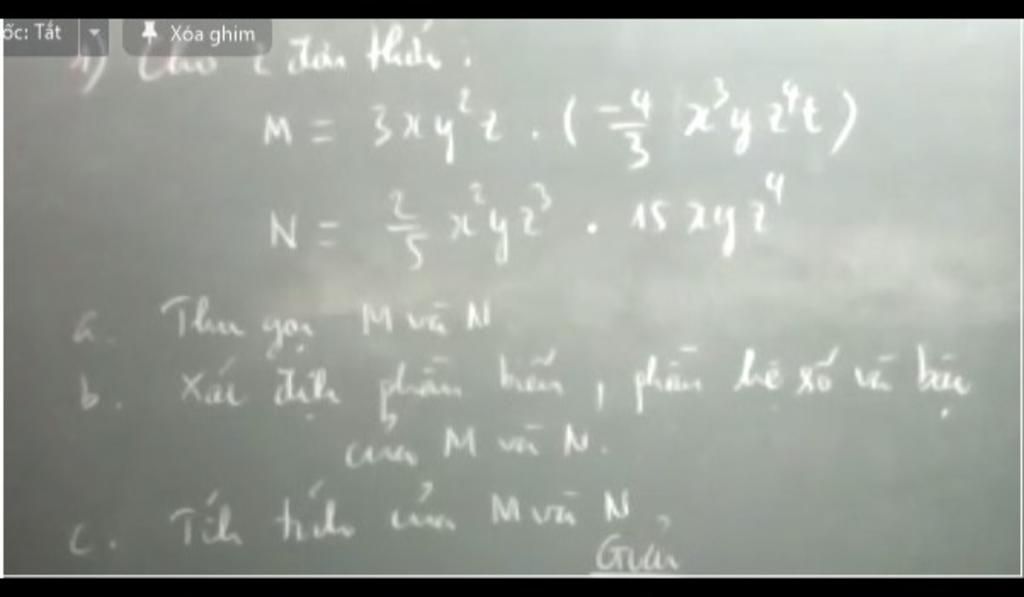 ốc: Tắt Xóa ghim
1) Cho 2 đơn thức :
M = 3xy²z . (-4/3 x³yz⁴t)
N = 2/5 x²yz³ . 15xyz⁴
a. Thu gọn M và N
b. Xác định phần biến, phần hệ số và bậc
của M và N.
c. Tính tích của M và N.
Giải